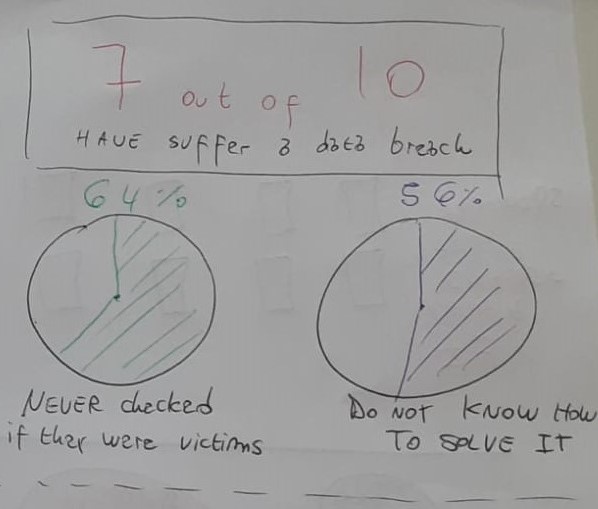 7 out of 10
HAVE suffer a data breach
64%
56%
NEVER checked
if they were victims
Do NOT KNOW HOW
TO SOLVE IT